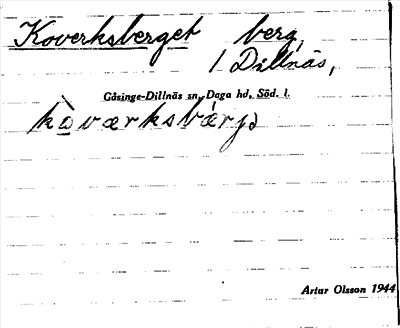 Koverksberget berg,
i Dillnäs,
Gåsinge-Dillnäs sn, Daga hd, Söd. l.
kòværksbárjə
Artar Olsson 1944